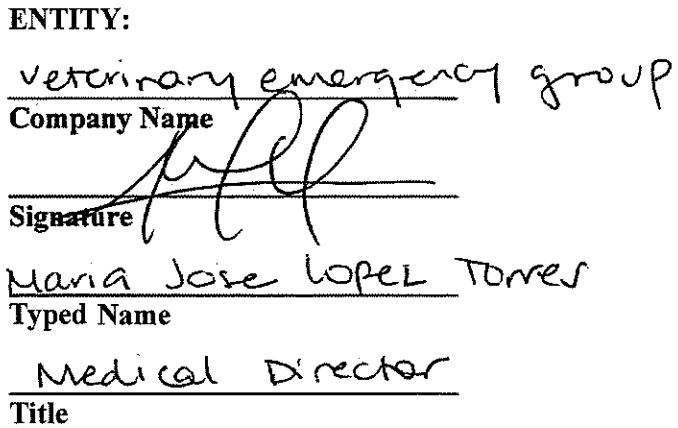 ENTITY:
veterinary emergency group
Company Name
Signature
Maria Jose Lopez Torres
Typed Name
Medical Director
Title